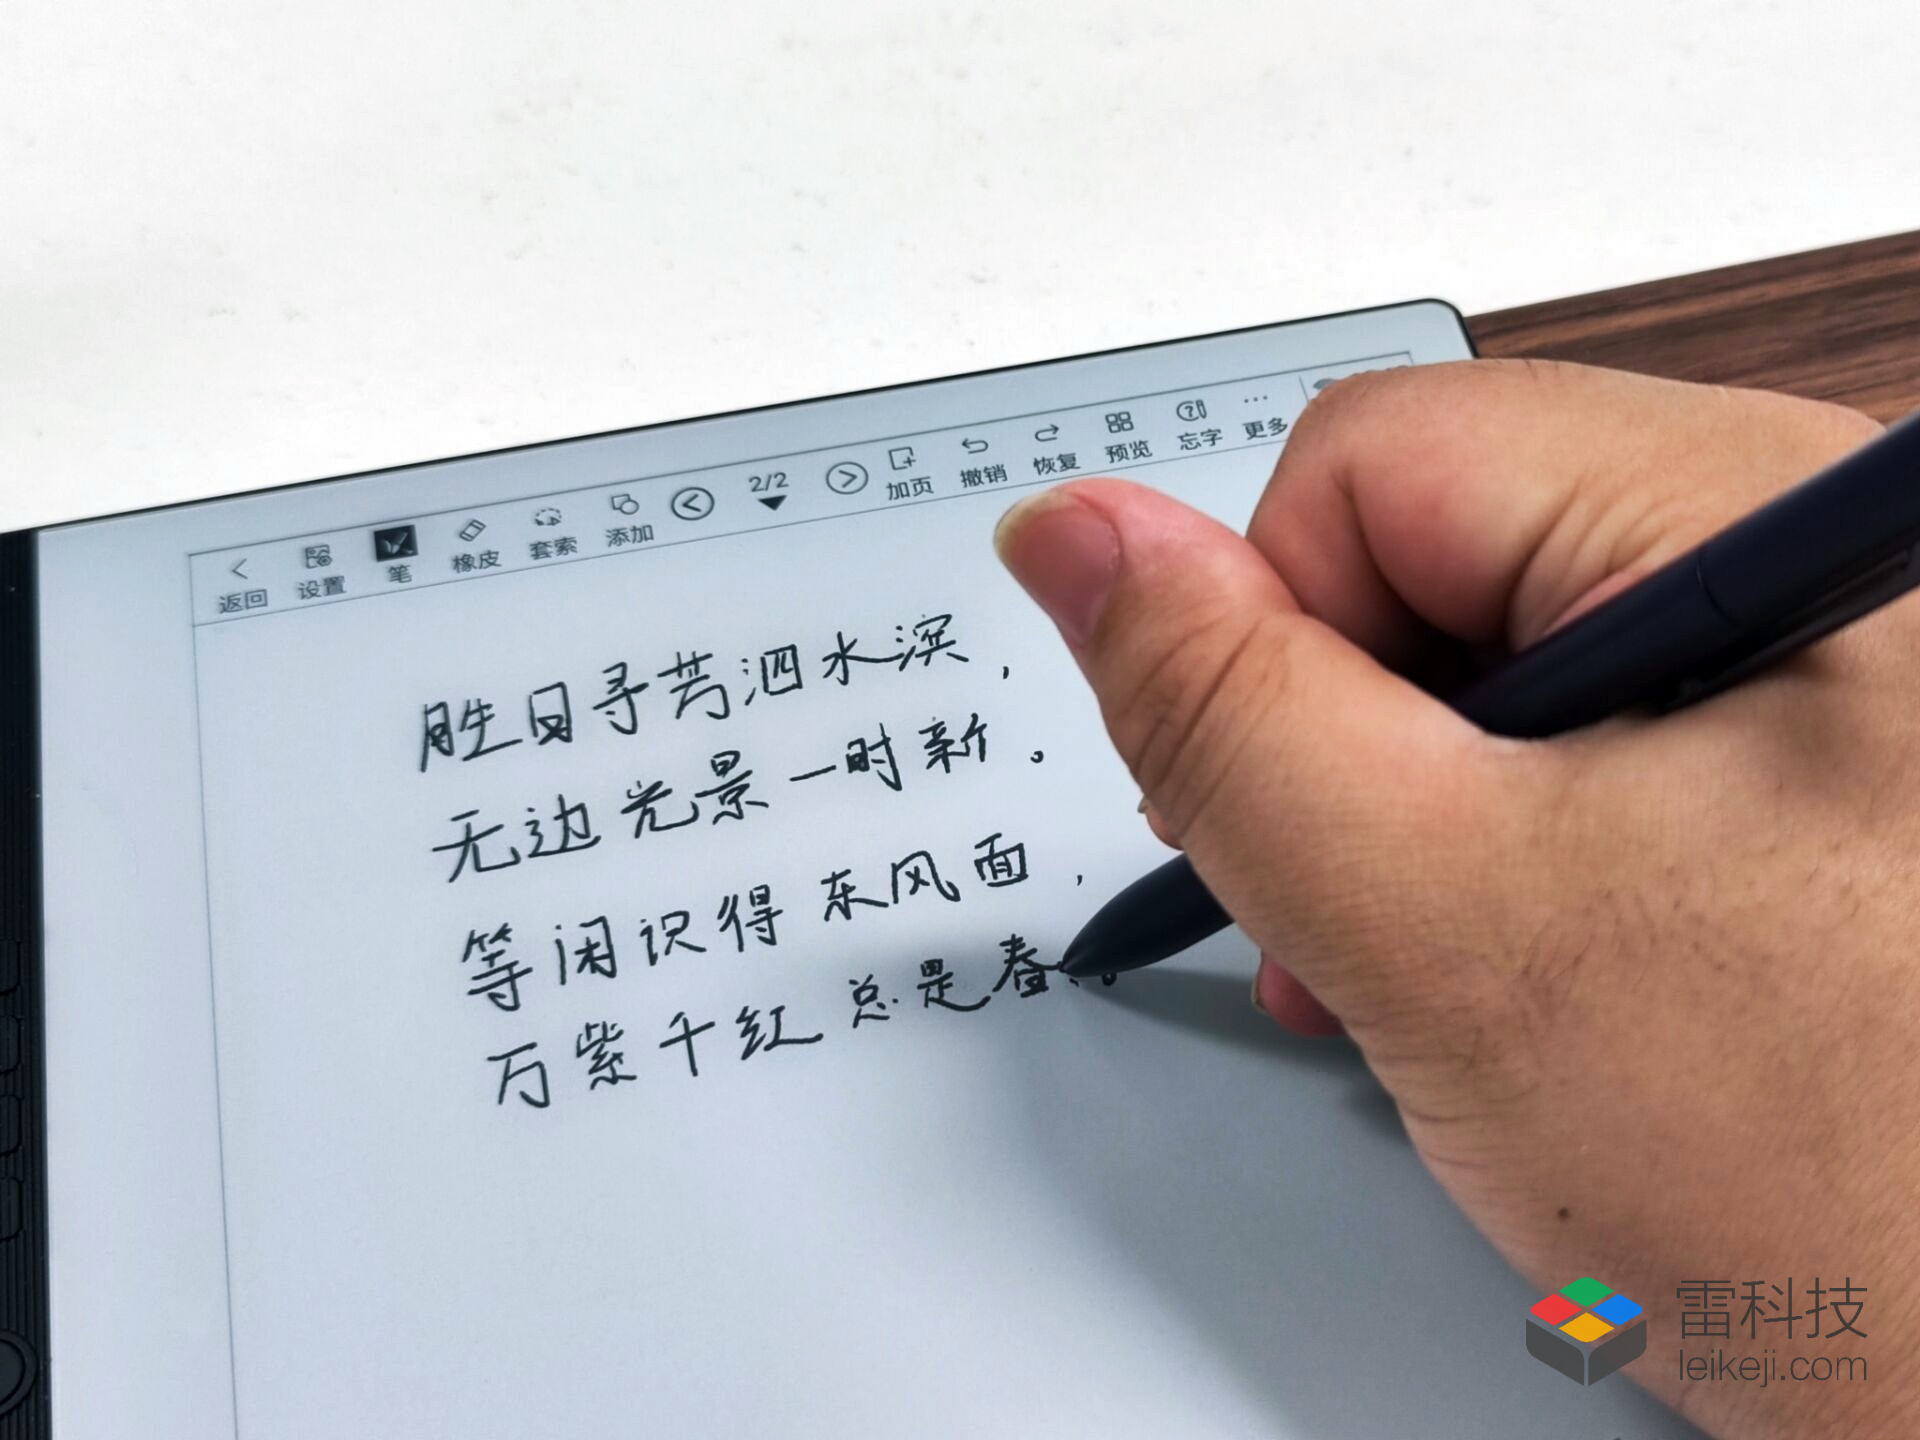 返回 设置 笔 橡皮 套索 添加 2/2 加页 撤销 恢复 预览 忘字 更多
胜日寻芳泗水滨，
无边光景一时新。
等闲识得东风面，
万紫千红总是春。
雷科技
leikeji.com